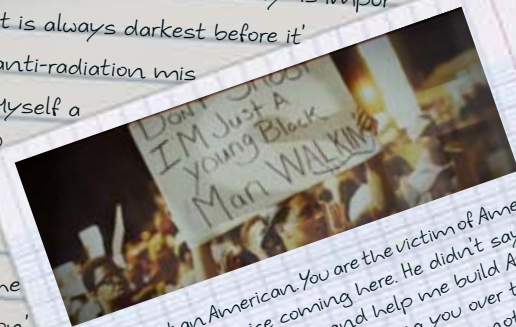 t is always darkest before it'
anti-radiation mis
Myself a
Don't Shoot
I'M Just A
young Black
Man WALKING
an American. You are the victim of Ame
coming here. He didn't say
and help me build A
you over t